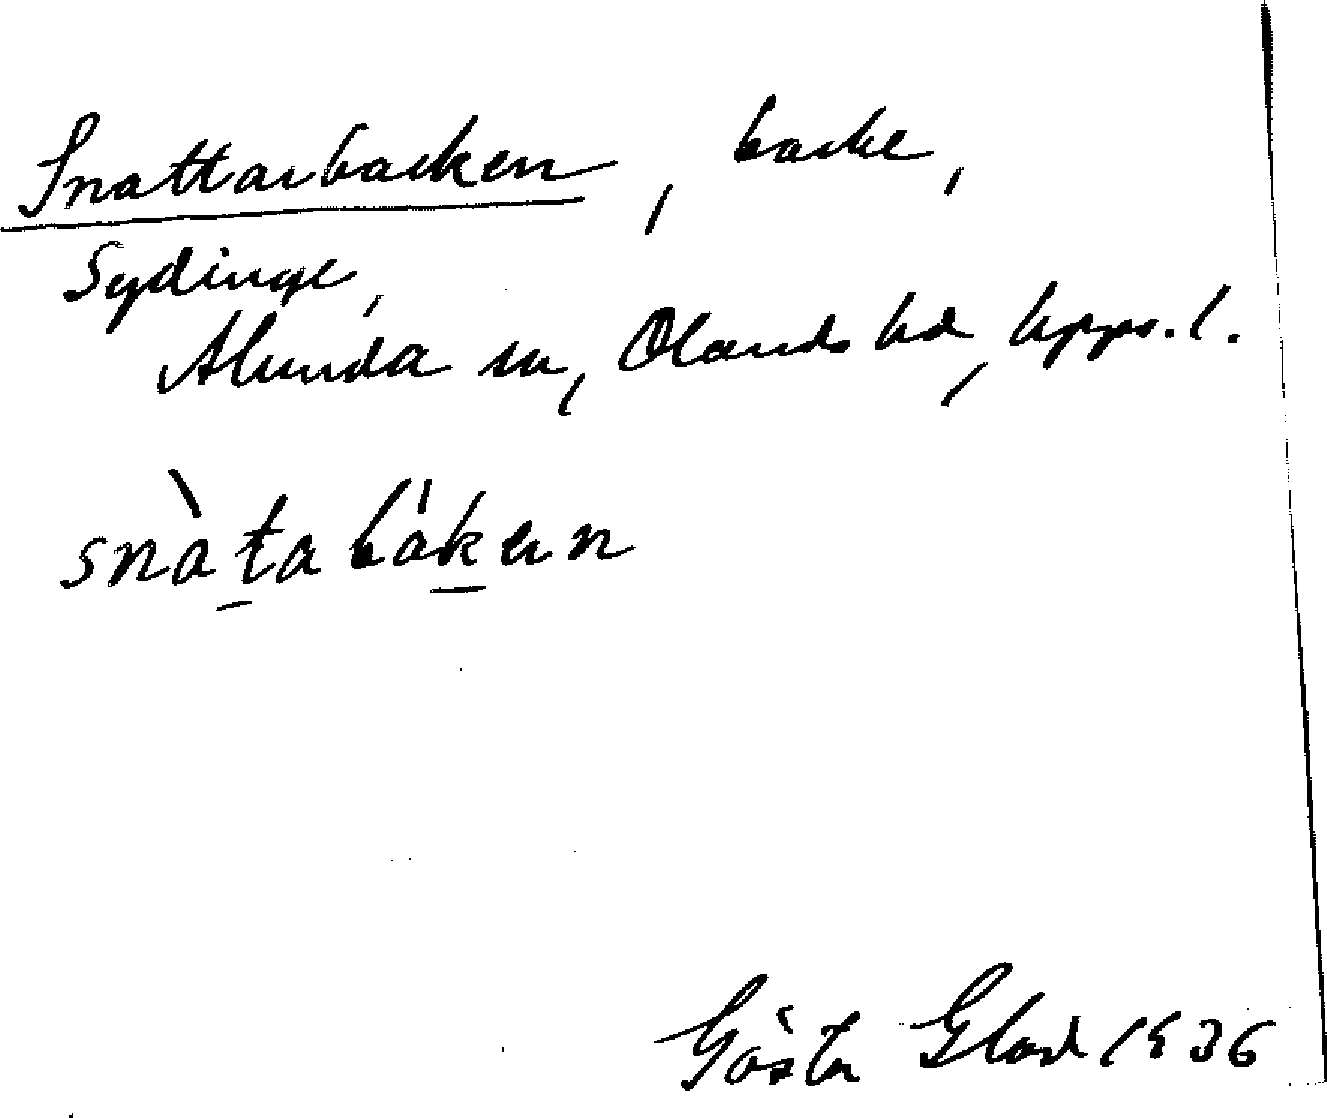 Snattarbacken, backe,
Sydinge,
Alunda sn, Olands hd, Upps. l.
snàtabákən
Gösta Glad 1936